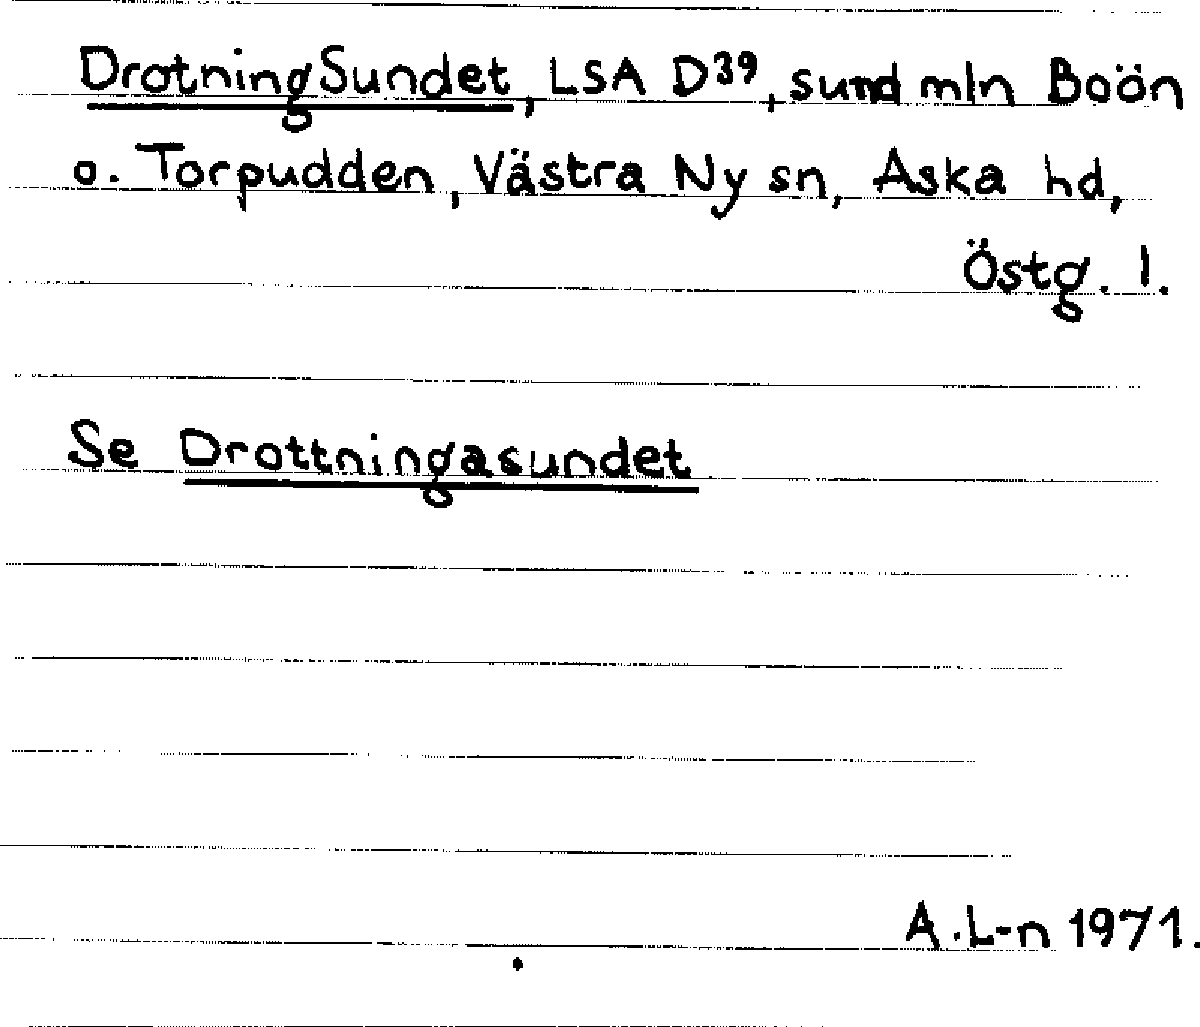 DrotningSundet, LSA D39, sund mln Boön
o. Torpudden, Västra Ny sn, Aska hd,
Östg. l.
Se Drottningasundet
A.L-n 1971.